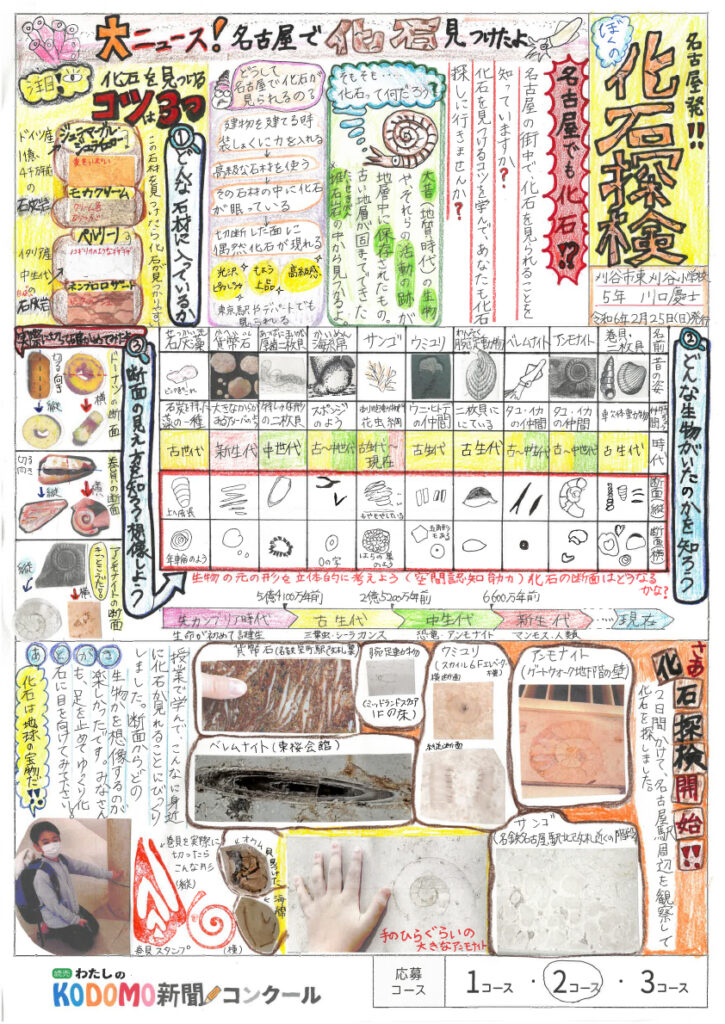 大ニュース!名古屋で化石見つけたよ
名古屋発!!
ぼくの
化石探検
刈谷市東刈谷小学校
5年 川口慶士
令和6年2月25日(日)発行
名古屋でも化石!?
名古屋の街中で化石を見られることを
知っていますか?
化石を見つけるコツを学んで、あなたも化石
探しに行きませんか?
そもそも…
化石って何だろう?
大昔(地質時代)の生物
やそれらの活動の跡が
地層中に保存されたもの。
古い地層が固まってできた
堆積岩の中から見つかるよ
どうして
名古屋で化石が
見られるの?
建物を建てる時
装しょくに力を入れる
高級な石材を使う
その石材の中に化石
が眠っている
切断した面に
偶然化石が現れる
光沢
もよう
上品
高級感
東京駅やデパートでも
見られる
注目!
化石を見つける
コツは3つ
①どんな石材に入っているか
この石材を見つけたら化石が見つかりやすい
ドイツ産
1億
4千
石灰岩
モカクリーム
ペルリーノ
イタリア産
中生代
の石灰岩
②どんな生物がいたのかを知ろう
名前
昔の姿
時代
断面縦
断面横
巻貝、二枚貝
アンモナイト
ベレムナイト
腕足動物
ウミユリ
サンゴ
海綿
厚歯二枚貝
貨幣石
石灰藻
タコ・イカの仲間
タコ・イカの仲間
二枚貝ににている
ウニ・ヒトデの仲間
花虫綱
スポンジのよう
古生代
古〜中世代
古生代
古生代
古生代
現在
古〜中世代
中世代
新生代
古世代
上へ成長
もやもやしている
五角形もある
年輪のよう
0の字
はちの巣のよう
生物の元の形を立体的に考えよう(空間認知能力)化石の断面はどうなるかな?
5億4100万年前
2億5200万年前
6600万年前
先カンブリア時代
古生代
中生代
新生代
現在
生命が初めて誕生
三葉虫・シーラカンス
恐竜・アンモナイト
マンモス・人類
③断面の見え方を知ろう想像しよう
実際に切って確かめてみたよ
ドーナツの断面
切る向き
縦
横
巻貝の断面
切る向き
縦
横
アンモナイトの断面
縦
横
さあ
化石探検開始!!
2日間かけて、名古屋駅周辺を観察して
化石を探しました。
アンモナイト
(ゲートウォーク地下階の壁)
ウミユリ
横断面
縦断面
腕足動物
(ミッドランドスクエア
1Fの床)
貨幣石
ベレムナイト(東桜会館)
サンゴ
手のひらぐらいの
大きなアンモナイト
巻貝を実際に
切ったら
こんな形
(縦)
巻貝スタンプ
(横)
海綿
授業で学んで、こんなに身近
に化石が見れることにびっくり
しました。断面からどの
生物かを想像するのが
楽しかったです。みなさん
も、足を止めてゆっくり化
石に目を向けてみて下さい。
あとがき
化石は地球の宝物だ!!
読売 わたしの
KODOMO新聞コンクール
応募
コース
1コース・2コース・3コース